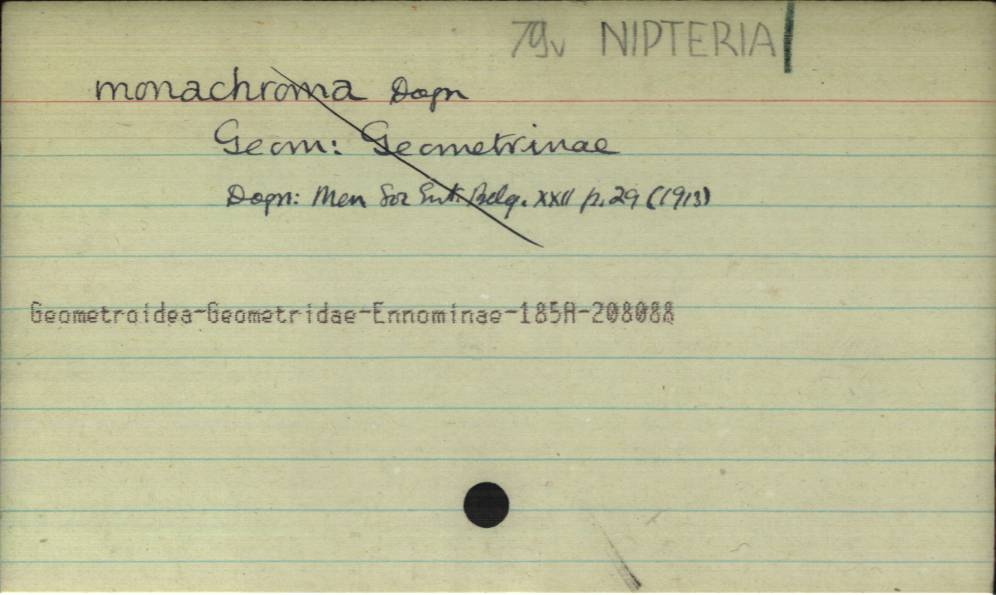 79v NIPTERIA
monachroma Dogn
Geom: Geometrinae
Dogn: Mem Soc Ent. Belg. XXII p. 29 (1913)
Geometroidea-Geometridae-Ennominae-185A-208088